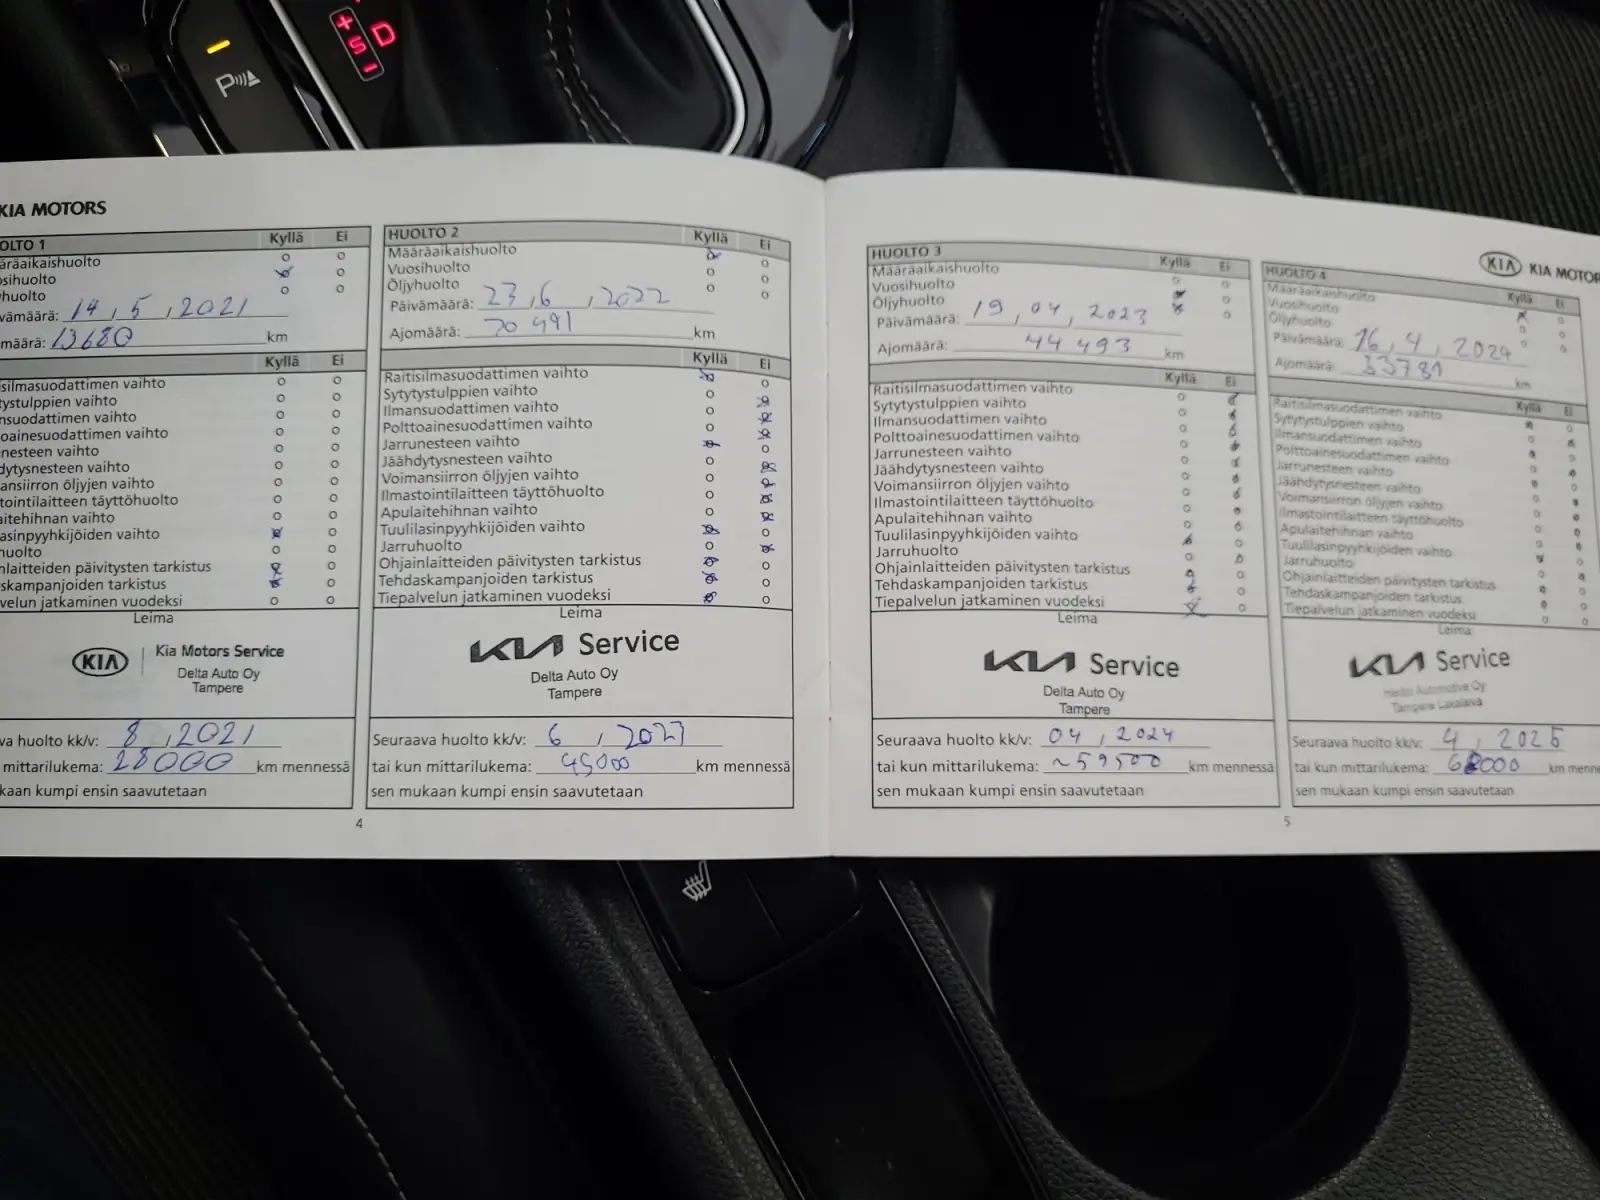 P
+
S
-
D
KIA MOTORS
OLTO 1 Kyllä Ei
äräaikaishuolto
osihuolto
yhuolto
vämäärä: 14, 5, 2021
määrä: 13680 km
Kyllä Ei
silmasuodattimen vaihto
tystulppien vaihto
nsuodattimen vaihto
oainesuodattimen vaihto
nesteen vaihto
dytysnesteen vaihto
ansiirron öljyjen vaihto
tointilaitteen täyttöhuolto
aitehihnan vaihto
asinpyyhkijöiden vaihto
huolto
nlaitteiden päivitysten tarkistus
skampanjoiden tarkistus
velun jatkaminen vuodeksi
Leima
KIA Kia Motors Service
Delta Auto Oy
Tampere
va huolto kk/v: 8, 2021
mittarilukema: 28000 km mennessä
kaan kumpi ensin saavutetaan
4
HUOLTO 2 Kyllä Ei
Määräaikaishuolto
Vuosihuolto
Öljyhuolto
Päivämäärä: 23, 6, 2022
Ajomäärä: 30 491 km
Kyllä Ei
Raitisilmasuodattimen vaihto
Sytytystulppien vaihto
Ilmansuodattimen vaihto
Polttoainesuodattimen vaihto
Jarrunesteen vaihto
Jäähdytysnesteen vaihto
Voimansiirron öljyjen vaihto
Ilmastointilaitteen täyttöhuolto
Apulaitehihnan vaihto
Tuulilasinpyyhkijöiden vaihto
Jarruhuolto
Ohjainlaitteiden päivitysten tarkistus
Tehdaskampanjoiden tarkistus
Tiepalvelun jatkaminen vuodeksi
Leima
KIA Service
Delta Auto Oy
Tampere
Seuraava huolto kk/v: 6, 2023
tai kun mittarilukema: 45000 km mennessä
sen mukaan kumpi ensin saavutetaan
HUOLTO 3 Kyllä Ei
Määräaikaishuolto
Vuosihuolto
Öljyhuolto
Päivämäärä: 19, 04, 2023
Ajomäärä: 44 493 km
Kyllä Ei
Raitisilmasuodattimen vaihto
Sytytystulppien vaihto
Ilmansuodattimen vaihto
Polttoainesuodattimen vaihto
Jarrunesteen vaihto
Jäähdytysnesteen vaihto
Voimansiirron öljyjen vaihto
Ilmastointilaitteen täyttöhuolto
Apulaitehihnan vaihto
Tuulilasinpyyhkijöiden vaihto
Jarruhuolto
Ohjainlaitteiden päivitysten tarkistus
Tehdaskampanjoiden tarkistus
Tiepalvelun jatkaminen vuodeksi
Leima
KIA Service
Delta Auto Oy
Tampere
Seuraava huolto kk/v: 04, 2024
tai kun mittarilukema: ~59500 km mennessä
sen mukaan kumpi ensin saavutetaan
5
KIA KIA MOTOR
HUOLTO 4 Kyllä Ei
Määräaikaishuolto
Vuosihuolto
Öljyhuolto
Päivämäärä: 16, 4, 2024
Ajomäärä: 53781 km
Kyllä Ei
Raitisilmasuodattimen vaihto
Sytytystulppien vaihto
Ilmansuodattimen vaihto
Polttoainesuodattimen vaihto
Jarrunesteen vaihto
Jäähdytysnesteen vaihto
Voimansiirron öljyjen vaihto
Ilmastointilaitteen täyttöhuolto
Apulaitehihnan vaihto
Tuulilasinpyyhkijöiden vaihto
Jarruhuolto
Ohjainlaitteiden päivitysten tarkistus
Tehdaskampanjoiden tarkistus
Tiepalvelun jatkaminen vuodeksi
Leima
KIA Service
Hedin Automotive Oy
Tampere Lakalaiva
Seuraava huolto kk/v: 4, 2025
tai kun mittarilukema: km menne
sen mukaan kumpi ensin saavutetaan